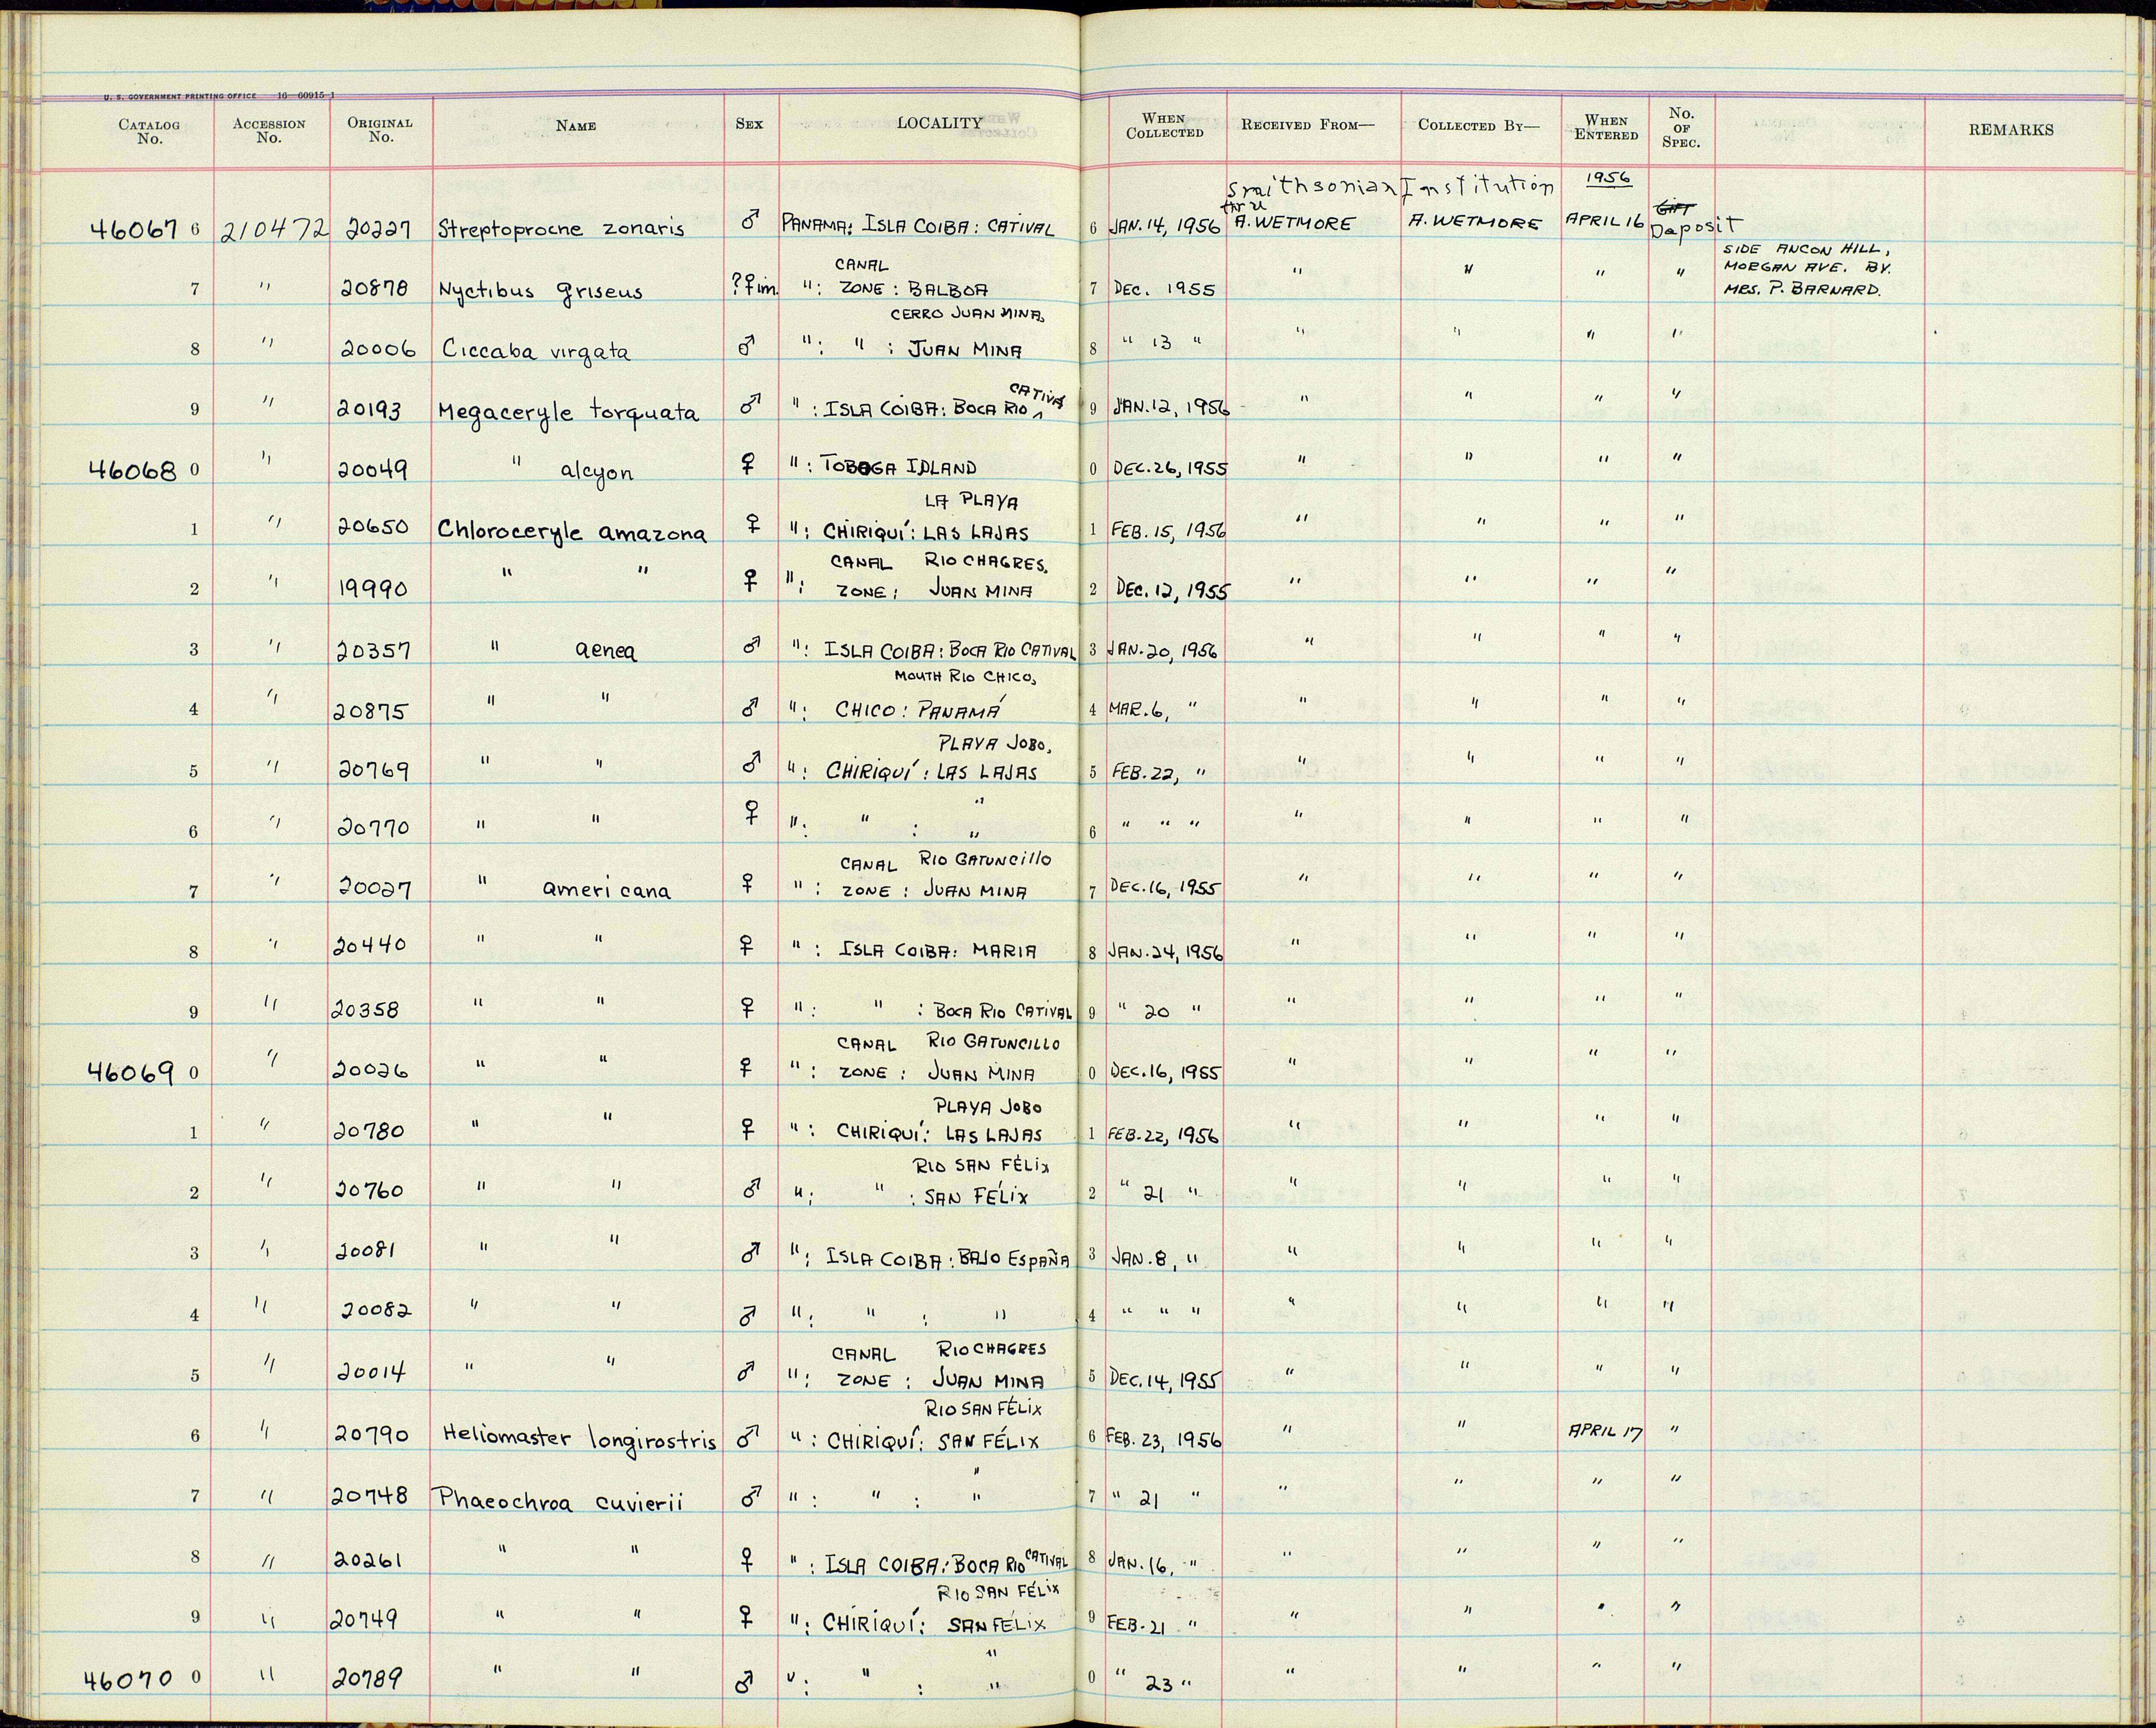 U. S. GOVERNMENT PRINTING OFFICE 16—60915-1
CATALOG No. ACCESSION No. ORIGINAL No. NAME SEX LOCALITY WHEN COLLECTED RECEIVED FROM— COLLECTED BY— WHEN ENTERED No. OF SPEC. REMARKS
Smithsonian Institution 1956
thru GIFT
46067 6 210472 20227 Streptoprocne zonaris ♂ PANAMA: ISLA COIBA: CATIVAL 6 JAN. 14, 1956 A. WETMORE A. WETMORE APRIL 16 Deposit
CANAL SIDE ANCON HILL,
MORGAN AVE. BY.
7 " 20878 Nyctibus griseus ??♀im. ": ZONE: BALBOA 7 DEC. 1955 " " " " MRS. P. BARNARD.
CERRO JUAN MINA,
8 " 20006 Ciccaba virgata ♂ ": " : JUAN MINA 8 " 13 " " " " "
CATIVAL
9 " 20193 Megaceryle torquata ♂ ": ISLA COIBA: BOCA RIO ^ 9 JAN. 12, 1956 " " " "
46068 0 " 20049 " alcyon ♀ ": TOBOGA IDLAND 0 DEC. 26, 1955 " " " "
LA PLAYA
1 " 20650 Chloroceryle amazona ♀ ": CHIRIQUÍ: LAS LAJAS 1 FEB. 15, 1956 " " " "
CANAL RIO CHAGRES,
2 " 19990 " " ♀ ": ZONE: JUAN MINA 2 DEC. 12, 1955 " " " "
3 " 20357 " aenea ♂ ": ISLA COIBA: BOCA RIO CATIVAL 3 JAN. 20, 1956 " " " "
MOUTH RIO CHICO,
4 " 20875 " " ♂ ": CHICO: PANAMÁ 4 MAR. 6, " " " " "
PLAYA JOBO,
5 " 20769 " " ♂ ": CHIRIQUÍ: LAS LAJAS 5 FEB. 22, " " " " "
"
6 " 20770 " " ♀ ": " : " 6 " " " " " " "
CANAL RIO GATUNCILLO
7 " 20027 " americana ♀ ": ZONE: JUAN MINA 7 DEC. 16, 1955 " " " "
8 " 20440 " " ♀ ": ISLA COIBA: MARIA 8 JAN. 24, 1956 " " " "
9 " 20358 " " ♀ ": " : BOCA RIO CATIVAL 9 " 20 " " " " "
CANAL RIO GATUNCILLO
46069 0 " 20026 " " ♀ ": ZONE: JUAN MINA 0 DEC. 16, 1955 " " " "
PLAYA JOBO
1 " 20780 " " ♀ ": CHIRIQUÍ: LAS LAJAS 1 FEB. 22, 1956 " " " "
RIO SAN FÉLIX
2 " 20760 " " ♂ ": " : SAN FÉLIX 2 " 21 " " " " "
3 " 20081 " " ♂ ": ISLA COIBA: BAJO ESPAÑA 3 JAN. 8, " " " " "
4 " 20082 " " ♂ ": " : " 4 " " " " " " "
CANAL RIO CHAGRES
5 " 20014 " " ♂ ": ZONE: JUAN MINA 5 DEC. 14, 1955 " " " "
RIO SAN FÉLIX
6 " 20790 Heliomaster longirostris ♂ ": CHIRIQUÍ: SAN FÉLIX 6 FEB. 23, 1956 " " APRIL 17 "
"
7 " 20748 Phaeochroa cuvierii ♂ ": " : " 7 " 21 " " " " "
8 " 20261 " " ♀ ": ISLA COIBA: BOCA RIO CATIVAL 8 JAN. 16, " " " " "
RIO SAN FÉLIX
9 " 20749 " " ♀ ": CHIRIQUÍ: SAN FÉLIX 9 FEB. 21 " " " " "
"
46070 0 " 20789 " " ♂ ": " : " 0 " 23 " " " " "